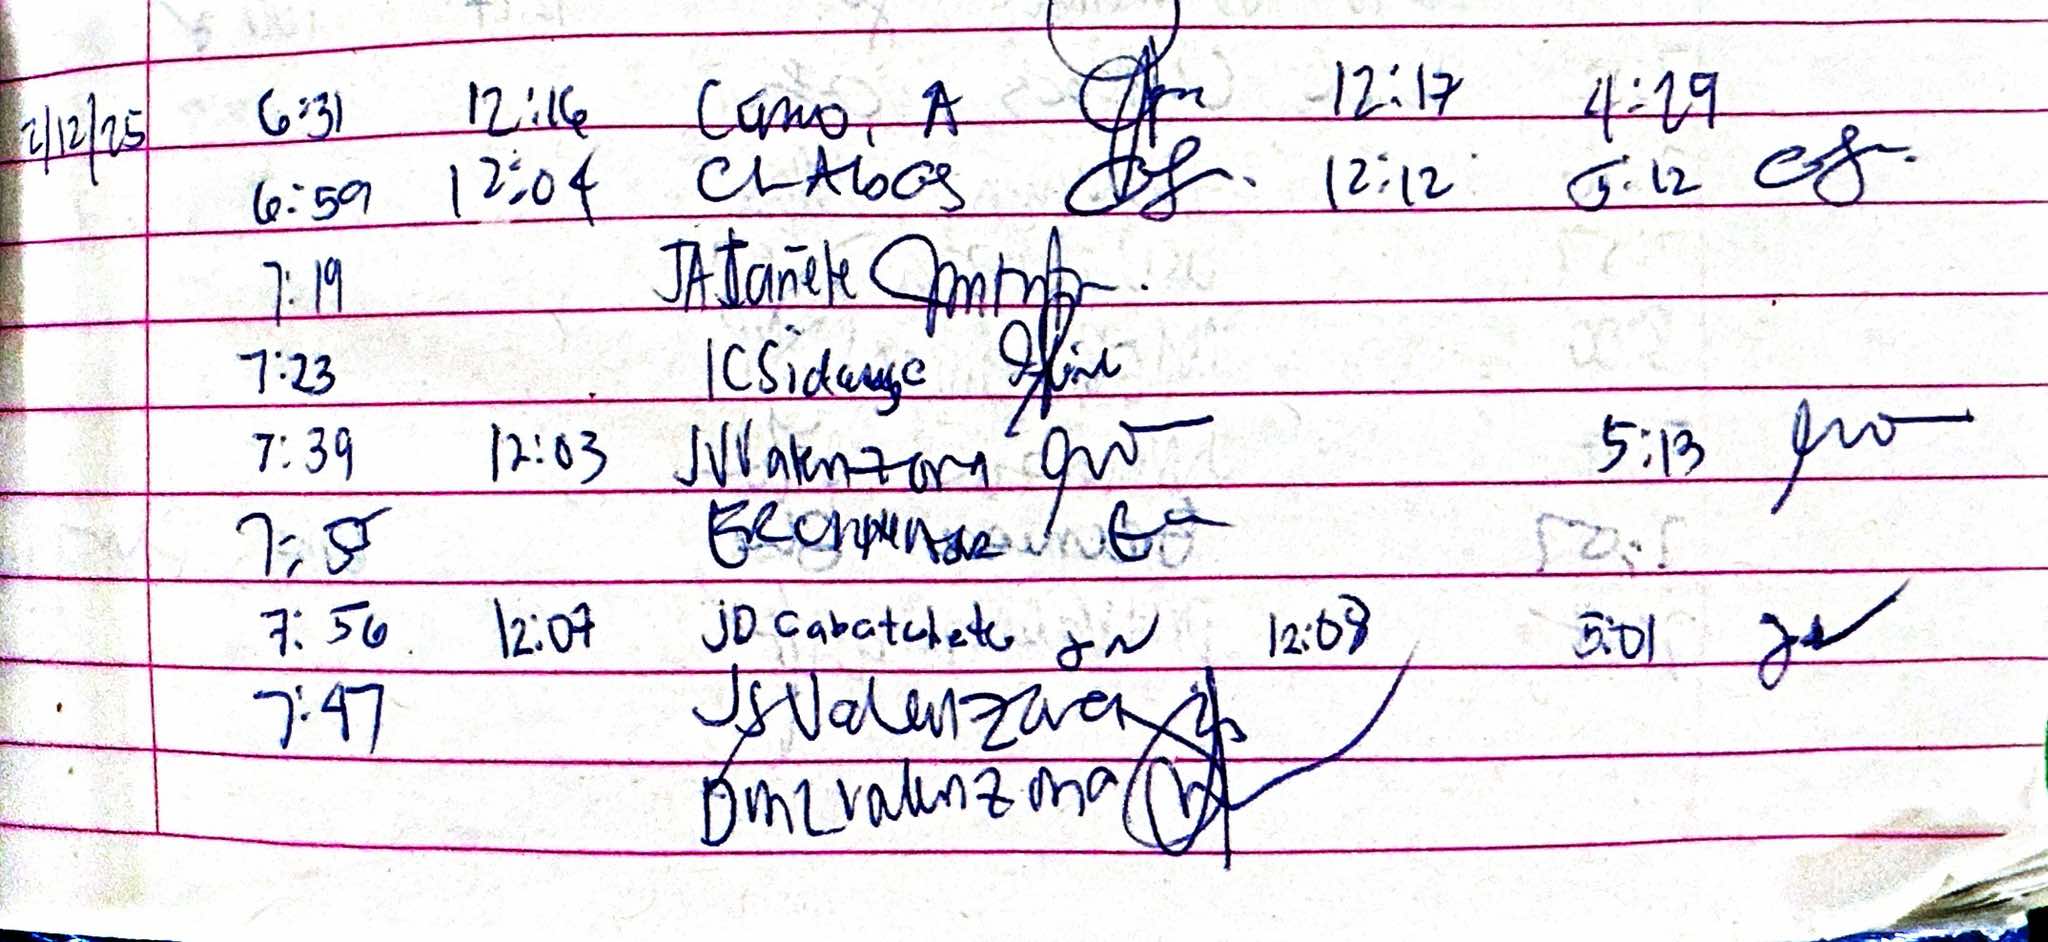 2/12/25 6:31 12:16 Cano, A 12:17 4:29
6:59 12:04 CLAbas 12:12 5:12
7:19 JAJañete
7:23 ICSidayge
7:39 12:03 JVValenzona 5:13
7:5
7:56 12:07 JD Cabatchete 12:08 5:01
7:47 JSValenzona
DMZValenzona